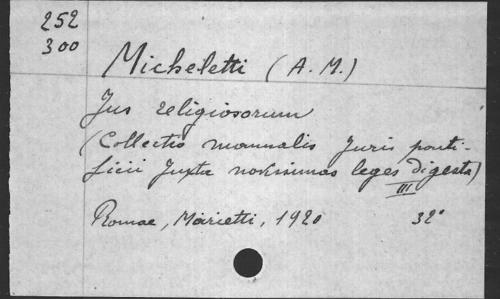 252
300
Micheletti (A. M.)
Jus religiosorum
(Collectio manualis Juris ponti-
ficii Juxta novissimas leges digesta)
III
Romae, Marietti, 1920 32°